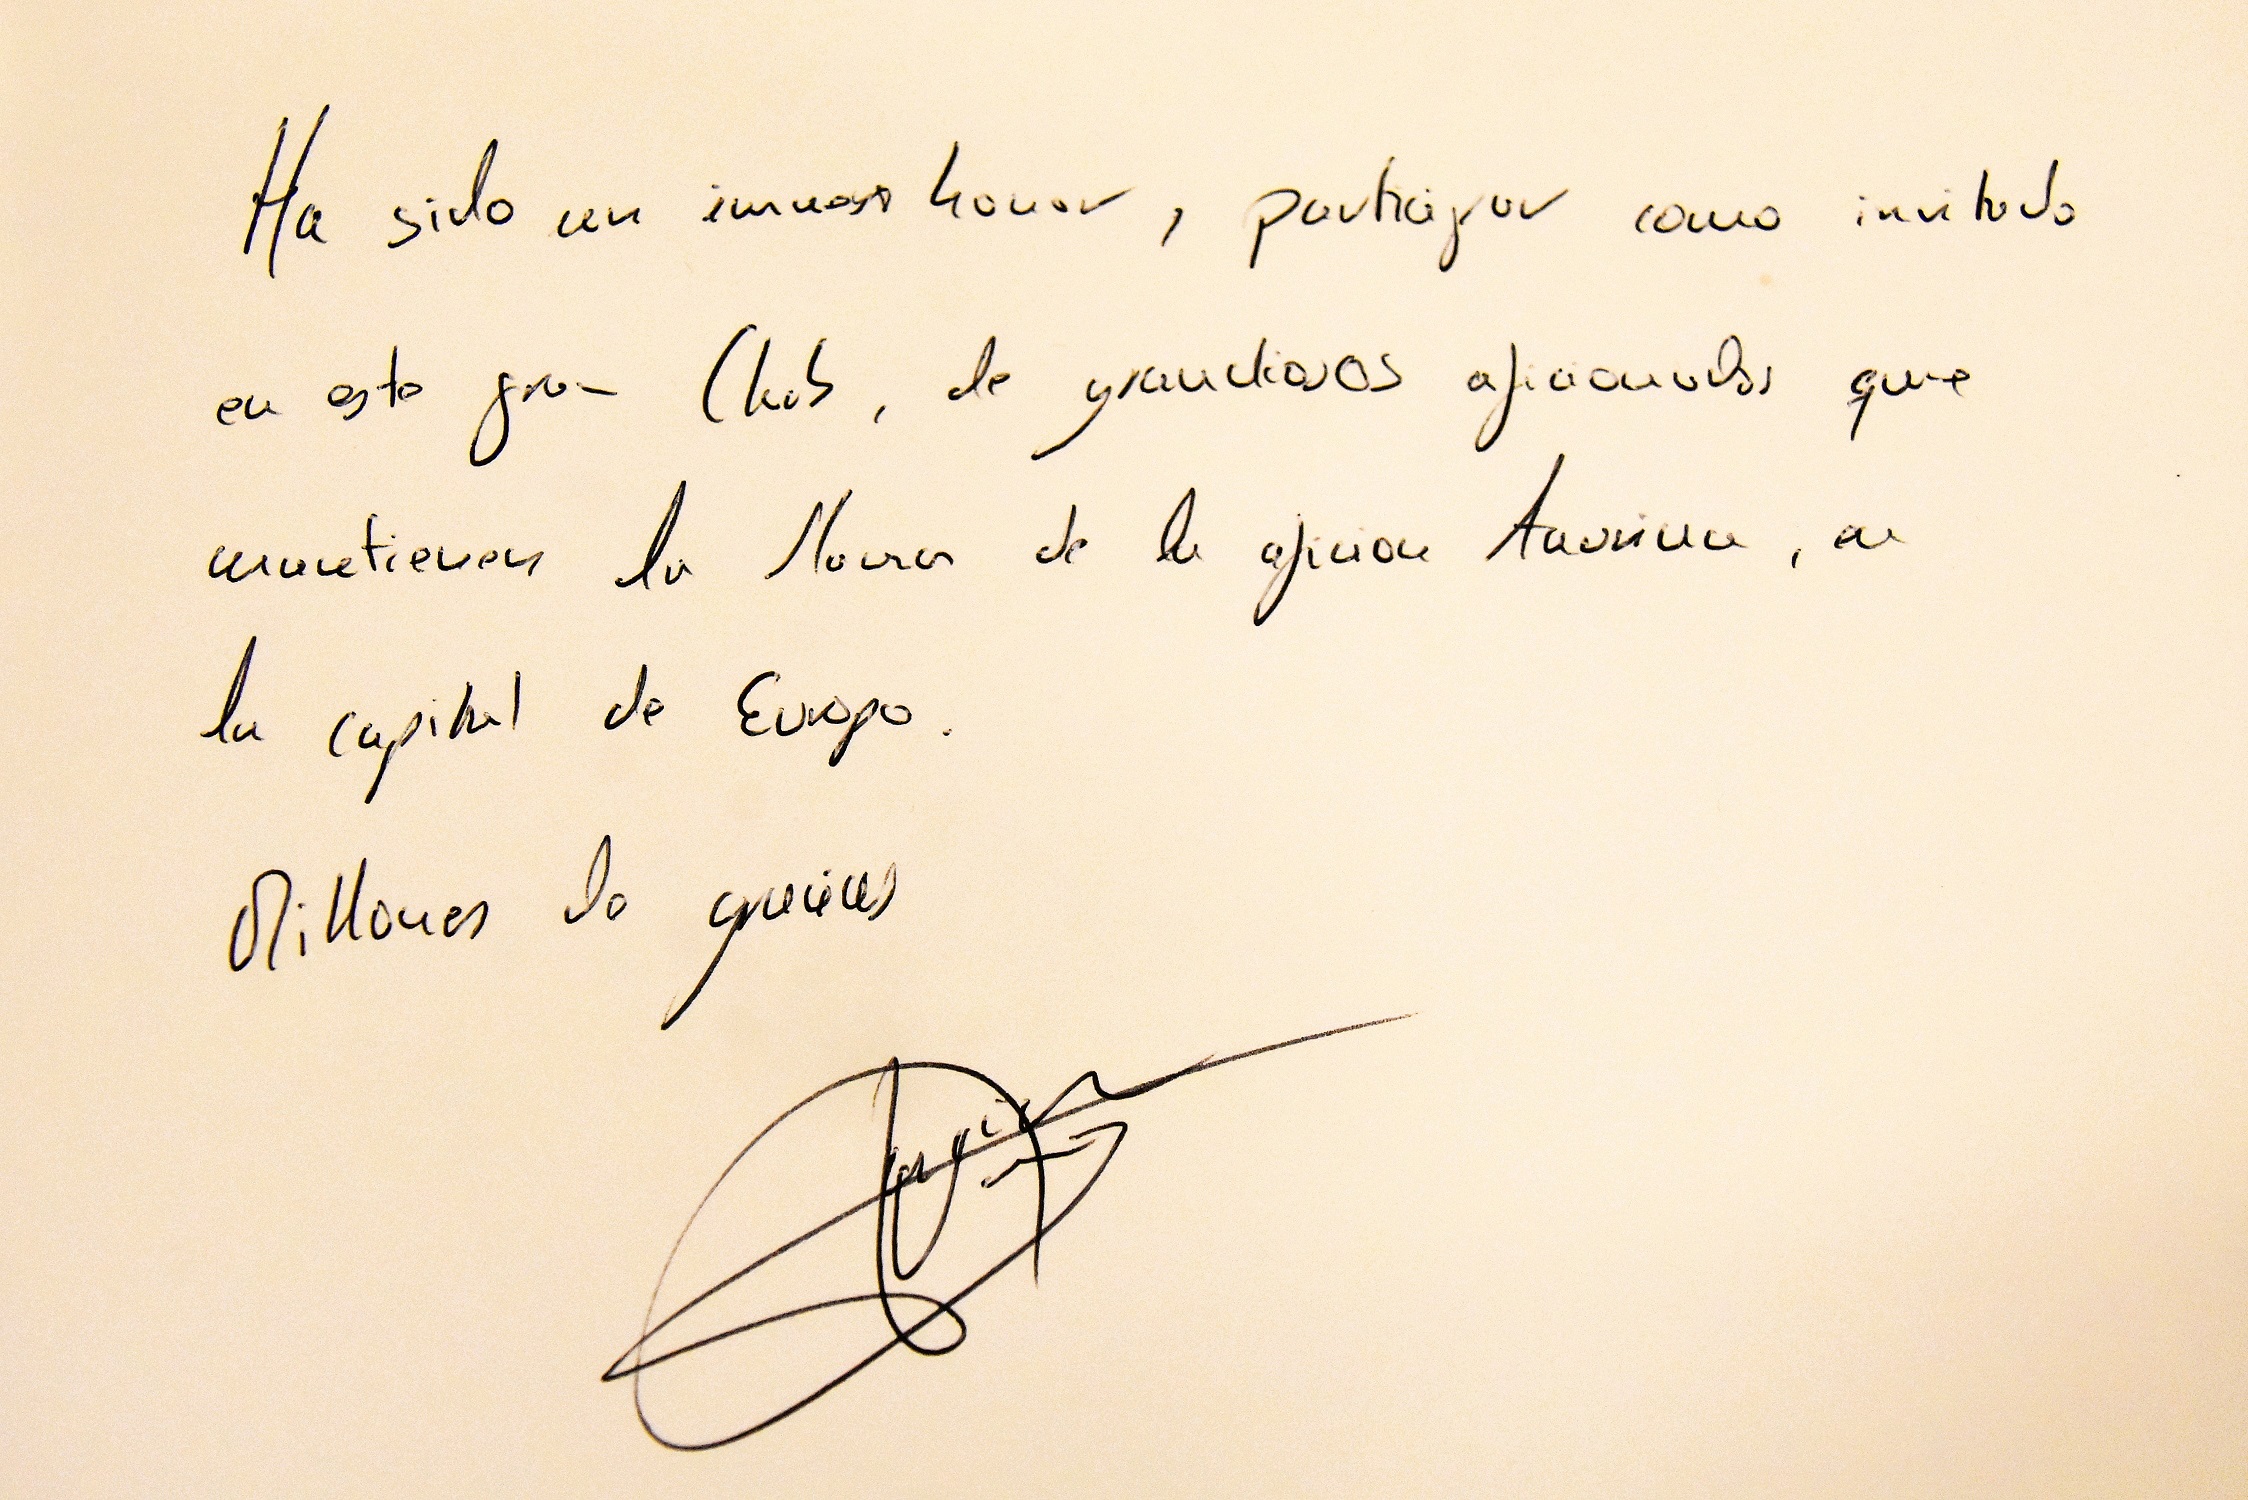 Ha sido un inmenso honor, participar como invitado
en este gran Club, de grandiosos aficionados que
mantienen la llama de la aficion taurina, en
la capital de Europa.
Millones de gracias